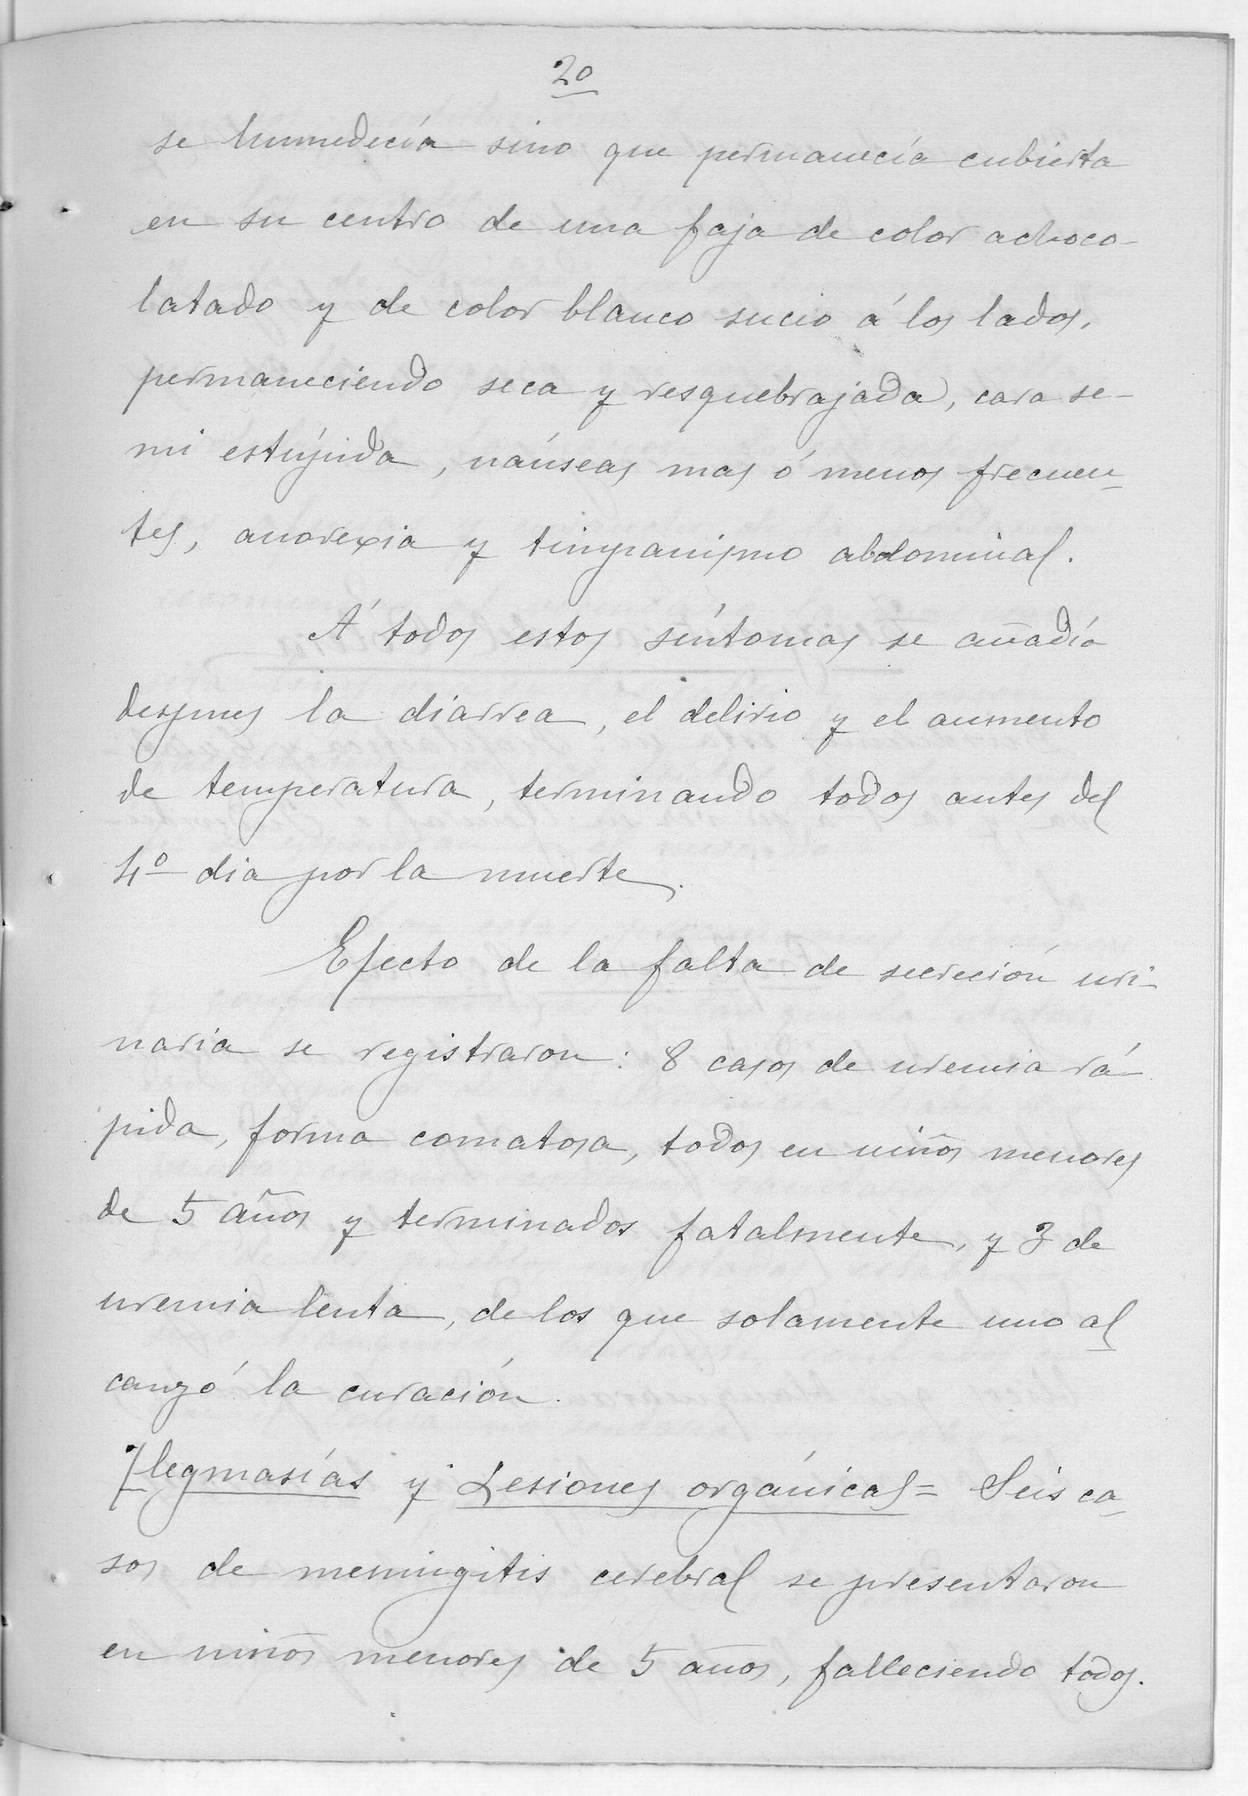 20
se humedecía sino que permanecía cubierta
en su centro de una faja de color achoco-
latado y de color blanco sucio á los lados,
permaneciendo seca y resquebrajada, cara se-
mi estúpida, náuseas mas ó menos frecuen-
tes, anorexia y timpanismo abdominal.
Á todos estos síntomas se añadía
despues la diarrea, el delirio y el aumento
de temperatura, terminando todos antes del
4º dia por la muerte.
Efecto de la falta de secreción uri-
naria se registraron: 8 casos de uremia rá-
pida, forma comatosa, todos en niños menores
de 5 años y terminados fatalmente, y 3 de
uremia lenta, de los que solamente uno al
canzó la curación.
Flegmasías y Lesiones orgánicas = Seis ca-
sos de meningitis cerebral se presentaron
en niños menores de 5 años, falleciendo todos.